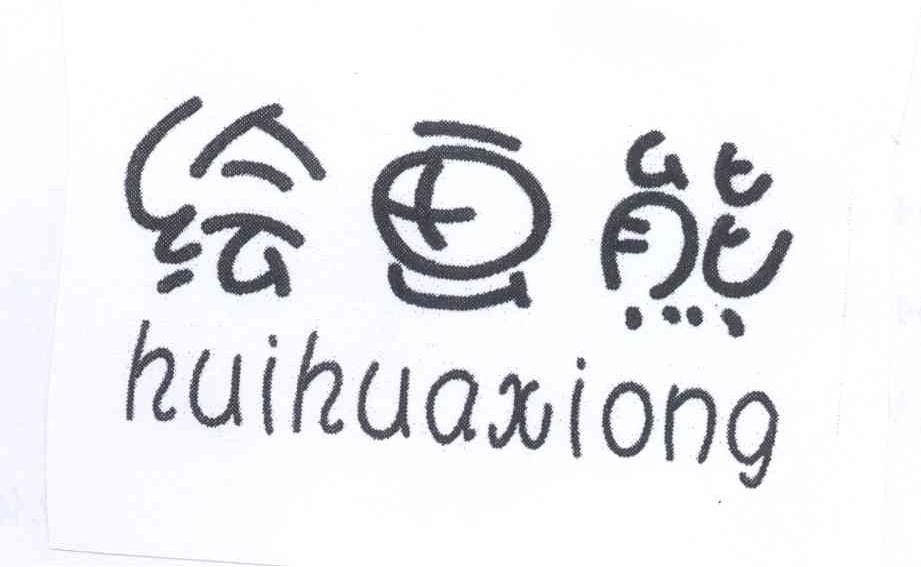 绘画熊
huihuaxiong